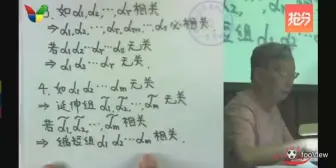 抢分
如 α₁ α₂, ⋯, αᵣ 相关
⇒ α₁, α₂, ⋯, αᵣ, αᵣ₊₁, ⋯, αₛ 必相关.
若 α₁ α₂ ⋯ αᵣ ⋯ αₛ 无关
⇒ α₁ α₂ ⋯ αᵣ 无关.
4. 如 α₁ α₂ ⋯ αₘ 无关
⇒ 延伸组 α̃₁, α̃₂, ⋯, α̃ₘ 无关
若 α̃₁, α̃₂, ⋯, α̃ₘ 相关
⇒ 缩短组 α₁ α₂ ⋯ αₘ 相关.
fooView